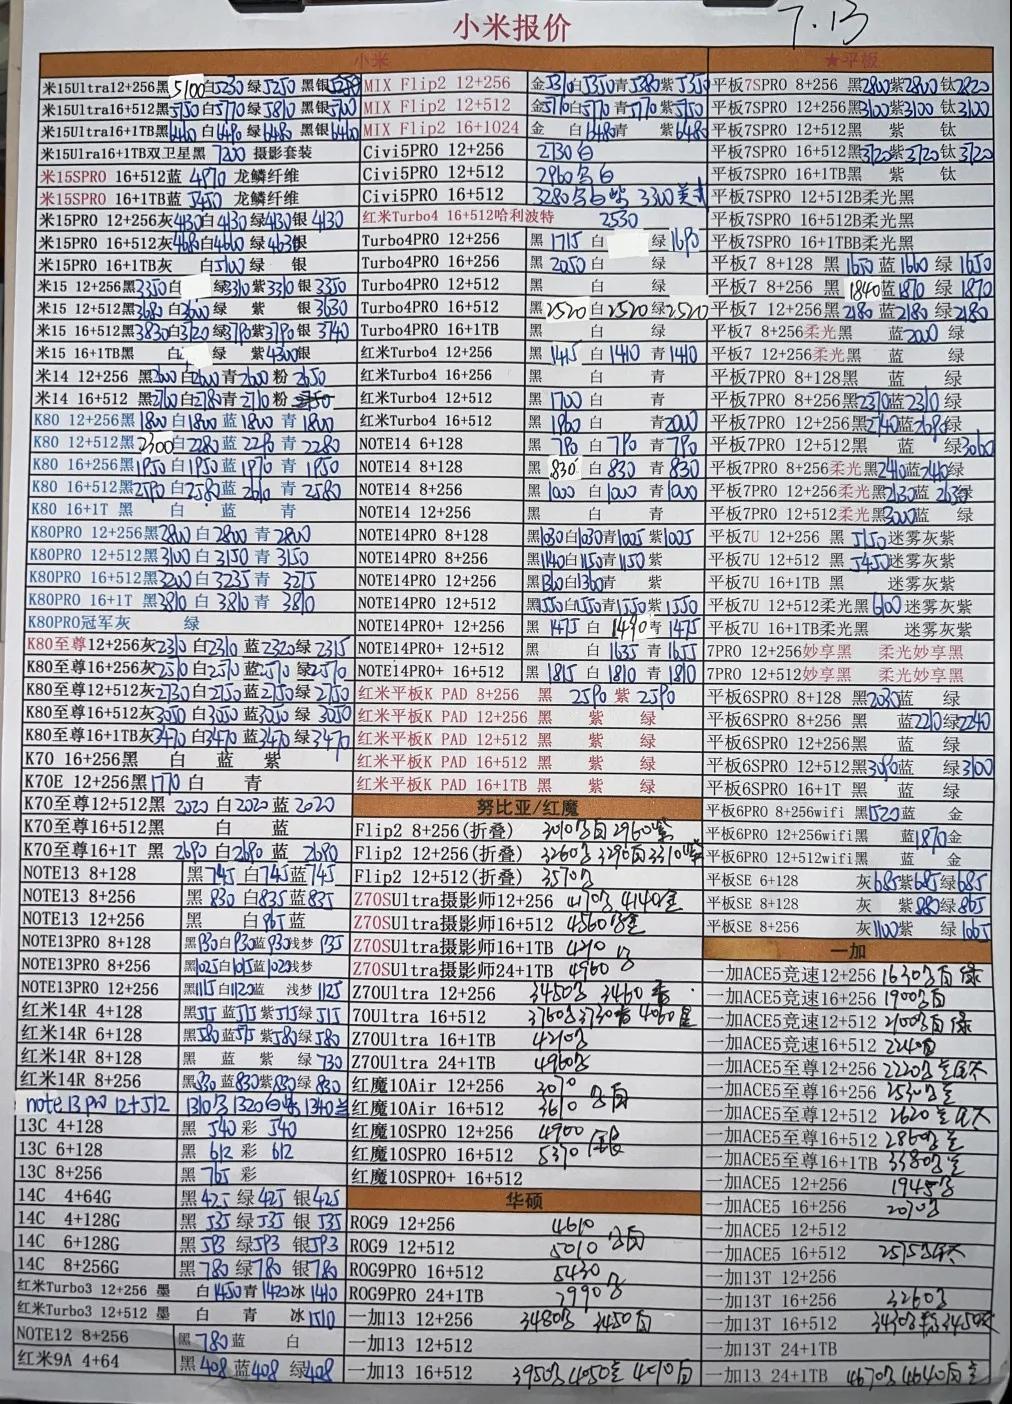 7.13
小米报价
小米
米15Ultra12+256黑5100白5230绿5250 黑银
米15Ultra16+512黑5750白5770绿5810黑银5700
米15Ultra16+1TB黑6460白6490绿6480 黑银6460
米15Ulra16+1TB双卫星黑 7200 摄影套装
米15SPRO 16+512蓝 4970 龙鳞纤维
米15SPRO 16+1TB蓝 5450 龙鳞纤维
米15PRO 12+256灰4130白4130绿4130银 4130
米15PRO 16+512灰4680白4600 绿4630银
米15PRO 16+1TB灰 白5100绿 银
米15 12+256黑3350白 绿3310紫3310 银 3350
米15 12+512黑3680白3600绿 紫 银 3630
米15 16+512黑3830白3720绿3790紫3790 银 3740
米15 16+1TB黑 白 绿 紫4300银
米14 12+256 黑2600白2600青2600粉 2650
米14 16+512 黑2760白2780青2770粉
K80 12+256黑1800白1800蓝1800 青 1800
K80 12+512黑2300白2280蓝2290青 2280
K80 16+256黑1950白1950蓝1970 青 1950
K80 16+512黑2590白2580蓝2610 青 2580
K80 16+1T 黑 白 蓝 青
K80PRO 12+256黑2800白2800 青 2800
K80PRO 12+512黑3100白 3150 青 3150
K80PRO 16+512黑3200白 3235青 3275
K80PRO 16+1T 黑3810 白 3810青 3810
K80PRO冠军灰 绿
K80至尊12+256灰2310 白2310 蓝2320绿2315
K80至尊16+256灰2510白2510蓝2570绿2570
K80至尊12+512灰2730白2750蓝2750绿 2750
K80至尊16+512灰3050 白3050 蓝3050 绿 3050
K80至尊16+1TB灰3470 白3470 蓝3470 绿3470
K70 16+256黑 白 蓝 紫
K70E 12+256黑1770 白 青
K70至尊12+512黑 2020 白2020 蓝 2020
K70至尊16+512黑 白 蓝
K70至尊16+1T 黑 2690 白2690 蓝 2690
NOTE13 8+128 黑 745 白745蓝745
NOTE13 8+256 黑 830 白835蓝835
NOTE13 12+256 黑 白965蓝
NOTE13PRO 8+128 黑930白930蓝930浅梦 935
NOTE13PRO 8+256 黑1025白1015蓝1020浅梦
NOTE13PRO 12+256 黑1115白1120蓝 浅梦 1125
红米14R 4+128 黑515蓝515紫515绿515
红米14R 6+128 黑580蓝575紫580绿580
红米14R 8+128 黑 蓝 紫 绿 730
红米14R 8+256 黑830 蓝830紫830绿 830
note 13 pro 12+512
13C 4+128 黑 540 彩 540
13C 6+128 黑 612 彩 612
13C 8+256 黑 765 彩
14C 4+64G 黑 425 绿425 银425
14C 4+128G 黑 535 绿535 银535
14C 6+128G 黑 593 绿593 银593
14C 8+256G 黑780绿780 银780
红米Turbo3 12+256 墨 白1450青1420冰1440
红米Turbo3 12+512 墨 白 青 冰1510
NOTE12 8+256 黑 780蓝 白
红米9A 4+64 黑408蓝408绿408
MIX Flip2 12+256 金5310白5350青5380紫5350
MIX Flip2 12+512 金5710白5770青5770紫5750
MIX Flip2 16+1024 金 白6480青 紫6480
Civi5PRO 12+256 2730白
Civi5PRO 12+512 2960 白
Civi5PRO 16+512
红米Turbo4 16+512哈利波特 2530
Turbo4PRO 12+256 黑 1715 白 绿1690
Turbo4PRO 16+256 黑 2050白 绿
Turbo4PRO 12+512 黑 白 绿
Turbo4PRO 16+512 黑2520白2520绿2520
Turbo4PRO 16+1TB 黑 白 绿
红米Turbo4 12+256 黑1415白 1410 青 1410
红米Turbo4 16+256 黑 白 青
红米Turbo4 12+512 黑 1700 白 青
红米Turbo4 16+512 黑1960 白 青2000
NOTE14 6+128 黑 790白790青790
NOTE14 8+128 黑830白 830 青830
NOTE14 8+256 黑1000白1000青1000
NOTE14 12+256 黑 白 青
NOTE14PRO 8+128 黑1030白1030青1005紫1005
NOTE14PRO 8+256 黑1140白1150青1150 紫
NOTE14PRO 12+256 黑1360白1360青 紫
NOTE14PRO 12+512 黑1550白1550青1550紫 1550
NOTE14PRO+ 12+256 黑 1475 白 1490青1475
NOTE14PRO+ 12+512 黑 白 1635青1655
NOTE14PRO+ 16+512 黑 1815白 1810青 1810
红米平板K PAD 8+256 黑 2590 紫 2590
红米平板K PAD 12+256 黑 紫 绿
红米平板K PAD 12+512 黑 紫 绿
红米平板K PAD 16+512 黑 紫 绿
红米平板K PAD 16+1TB 黑 紫 绿
努比亚/红魔
Flip2 8+256(折叠)
Flip2 12+256(折叠)
Flip2 12+512(折叠) 3570
Z70SUltra摄影师12+256
Z70SUltra摄影师16+512
Z70SUltra摄影师16+1TB
Z70SUltra摄影师24+1TB 4960
Z70Ultra 12+256
70Ultra 16+512
Z70Ultra 16+1TB 4210
Z70Ultra 24+1TB 4960
红魔10Air 12+256 3070
红魔10Air 16+512 3610
红魔10SPRO 12+256 4900
红魔10SPRO 16+512 5370
红魔10SPRO+ 16+512
华硕
ROG9 12+256 4610
ROG9 12+512 5010
ROG9PRO 16+512 5430
ROG9PRO 24+1TB 7990
一加13 12+256
一加13 12+512
一加13 16+512
★平板
平板7SPRO 8+256 黑2800紫2800钛2820
平板7SPRO 12+256黑3100紫3100钛3100
平板7SPRO 12+512黑 紫 钛
平板7SPRO 16+512黑3720紫3720钛3720
平板7SPRO 16+1TB黑 紫 钛
平板7SPRO 12+512B柔光黑
平板7SPRO 16+512B柔光黑
平板7SPRO 16+1TBB柔光黑
平板7 8+128 黑 1650蓝1660 绿1650
平板7 8+256 黑 1840蓝1870 绿 1870
平板7 12+256 黑2180蓝2180绿2180
平板7 8+256柔光黑 蓝2000 绿
平板7 12+256柔光黑 蓝 绿
平板7PRO 8+128黑 蓝 绿
平板7PRO 8+256黑2370蓝2310绿
平板7PRO 12+256黑2740蓝2690绿
平板7PRO 12+512黑 蓝 绿3060
平板7PRO 8+256柔光黑2410蓝2440绿
平板7PRO 12+256柔光黑2630蓝 2630绿
平板7PRO 12+512柔光黑3000蓝 绿
平板7U 12+256 黑 5150迷雾灰紫
平板7U 12+512 黑 5450迷雾灰紫
平板7U 16+1TB 黑 迷雾灰紫
平板7U 12+512柔光黑6100迷雾灰紫
平板7U 16+1TB柔光黑 迷雾灰紫
7PRO 12+256妙享黑 柔光妙享黑
7PRO 12+512妙享黑 柔光妙享黑
平板6SPRO 8+128 黑2030蓝 绿
平板6SPRO 8+256 黑 蓝2210绿2240
平板6SPRO 12+256黑 蓝 绿
平板6SPRO 12+512黑3090蓝 绿3100
平板6SPRO 16+1T 黑 蓝 绿
平板6PRO 8+256wifi 黑1520蓝 金
平板6PRO 12+256wifi黑 蓝1870金
平板6PRO 12+512wifi黑 蓝 金
平板SE 6+128 灰685紫685绿685
平板SE 8+128 灰 紫880绿865
平板SE 8+256 灰1100紫 绿1065
一加
一加ACE5竞速12+256
一加ACE5竞速16+256
一加ACE5竞速12+512
一加ACE5竞速16+512
一加ACE5至尊12+256
一加ACE5至尊16+256
一加ACE5至尊12+512
一加ACE5至尊16+512
一加ACE5至尊16+1TB
一加ACE5 12+256
一加ACE5 16+256
一加ACE5 12+512
一加ACE5 16+512
一加13T 12+256
一加13T 16+256
一加13T 16+512
一加13T 24+1TB
一加13 24+1TB